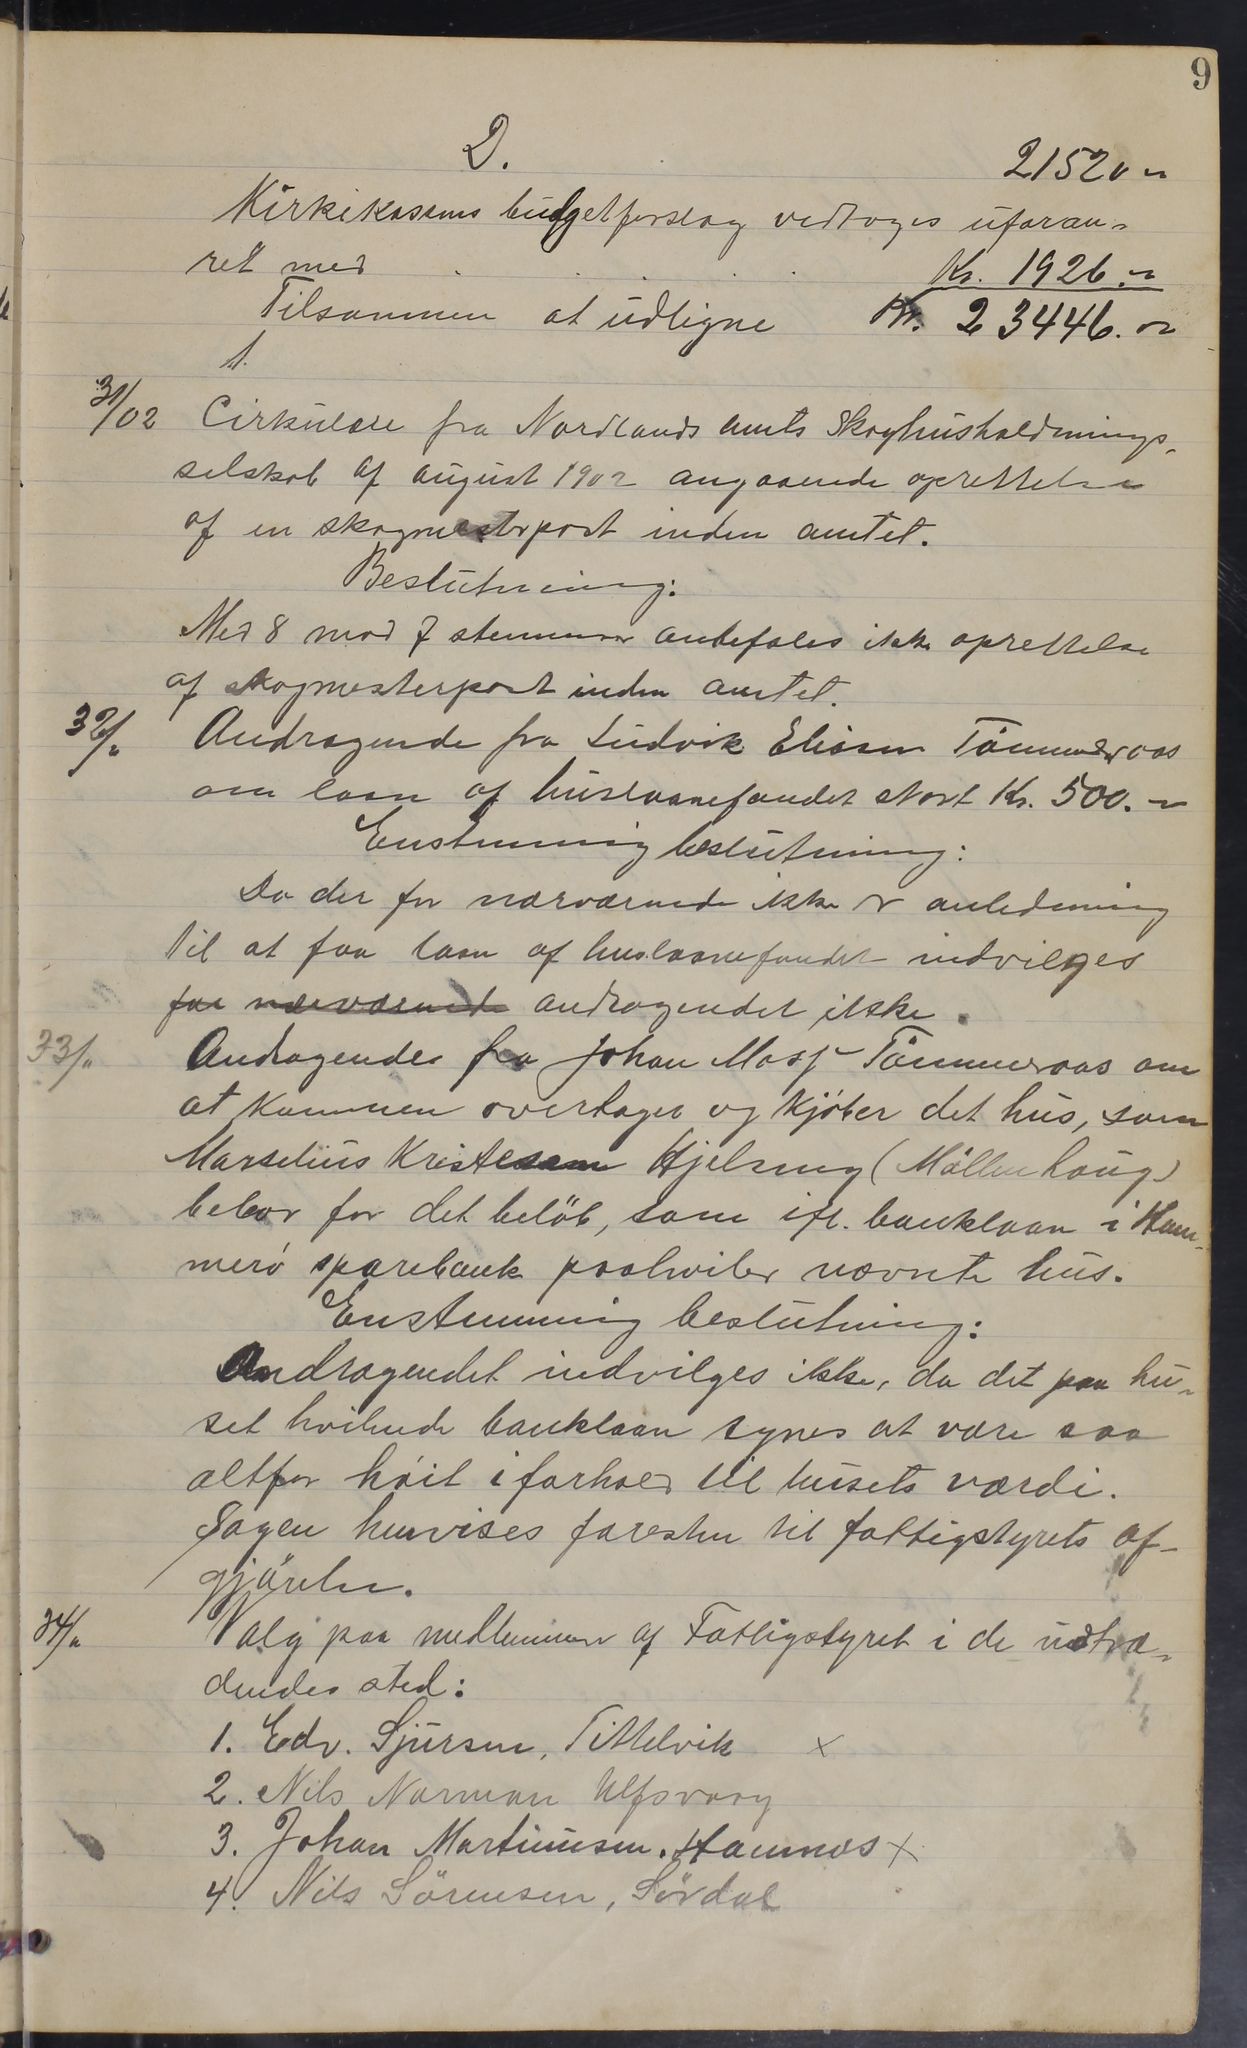 9
D. 21520 -
Kirkekassens budgetforslag vedtoges uforan-
ret med . . . . Kr. 1926.-
Tilsammen at udligne Kr. 23446.-
31/02 Cirkulære fra Nordlands amts Skoghusholdnings-
selskab af august 1902 angaaende oprettelse
af en skogmesterpost inden amtet.
Beslutning:
Med 8 mod 7 stemmer anbefales ikke oprettelse
af skogmesterpost inden amtet.
32/" Andragende fra Ludvik Eliasen Tömmeraas
om laan af huslaanefondet stort Kr. 500.-
Enstemmig beslutning:
Da der for nærværende ikke er anledning
til at faa laan af huslaanefondet indvilges
for nærværende andragendet ikke.
33/" Andragendes fra Johan Mosf Tömmeraas om
at kommunen overtager og kjöber det hus, som
Marselius Kristensen Hjelsnug (Möllerhaug)
bebor for det belöb, som ifl. banklaan i Ham-
merö sparebank paahviler nævnte hus.
Enstemmig beslutning:
Andragendet indvilges ikke, da det paa hu-
set hvilende banklaan synes at være saa
altfor höit i forhold til husets værdi.
Sagen henvises foresten til fattigstyrets af-
gjörelse.
34/" Valg paa medlemmer af Fattigstyret i de udtræ-
dendes sted:
1. Edv. Sjursen, Tittelvik x
2. Nils Norman Ulfsvaag
3. Johan Martinusen. Hamnes x
4. Nils Sörensen, Sördal